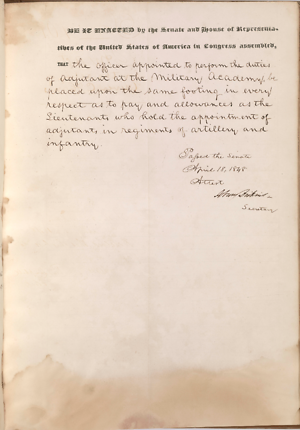 BE IT ENACTED by the Senate and House of Representa-
tives of the United States of America in Congress assembled,
THAT the officer appointed to perform the duties
of adjutant at the Military Academy, be
placed upon the same footing in every
respect as to pay and allowances as the
Lieutenants who hold the appointment of
adjutants in regiments of artillery and
infantry.
Passed the Senate
April 18, 1848
Attest
Secretary